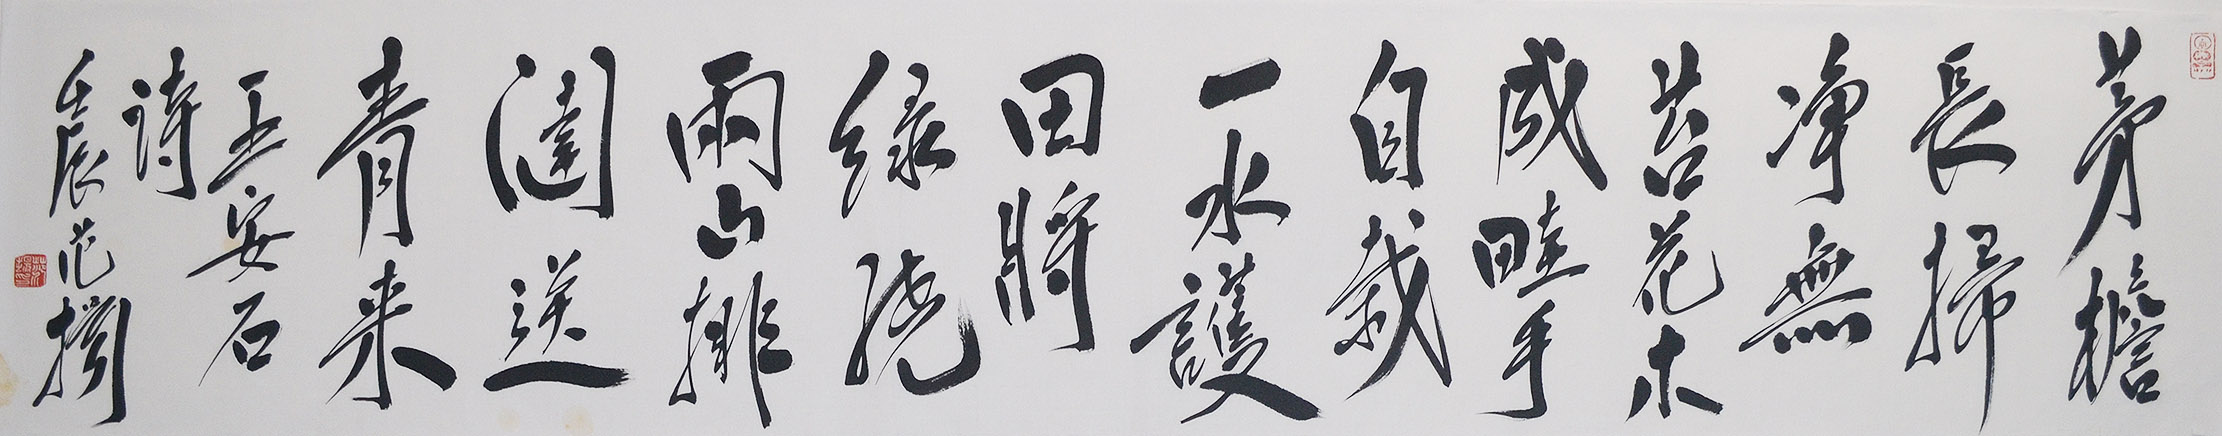 茅檐
長掃
净無
苔花木
成畦手
自栽
一水護
田將
绿绕
兩山排
闥送
青来
王安石
詩
壬辰范撝